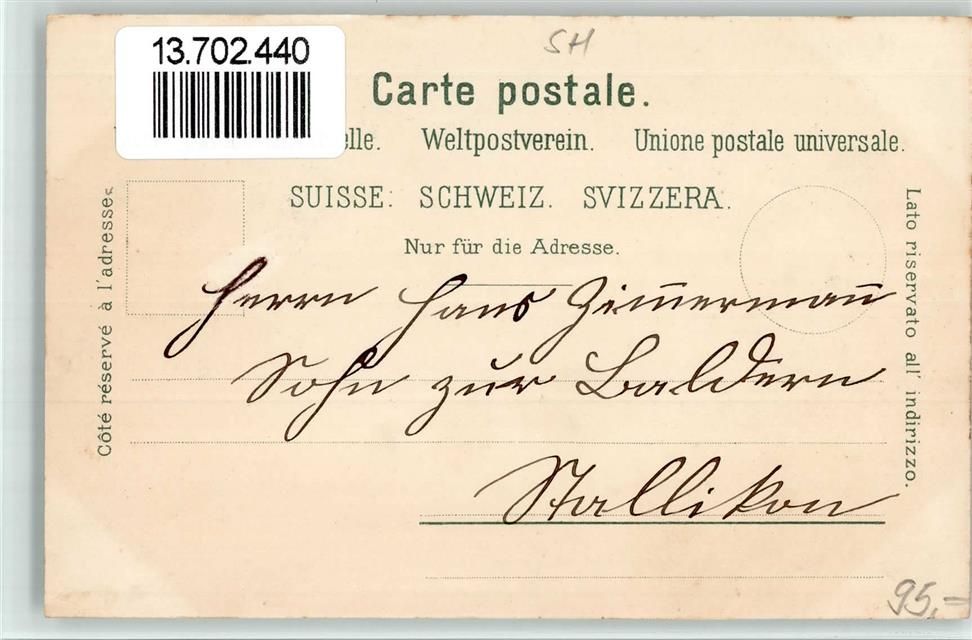 13.702.440
SH
Carte postale.
elle. Weltpostverein. Unione postale universale.
SUISSE. SCHWEIZ. SVIZZERA.
Nur für die Adresse.
Côté réservé à l'adresse.
Lato riservato all' indirizzo.
Herrn Hans Zim̅erman̅
Sohn zur Baldern
Stallikon
95,=